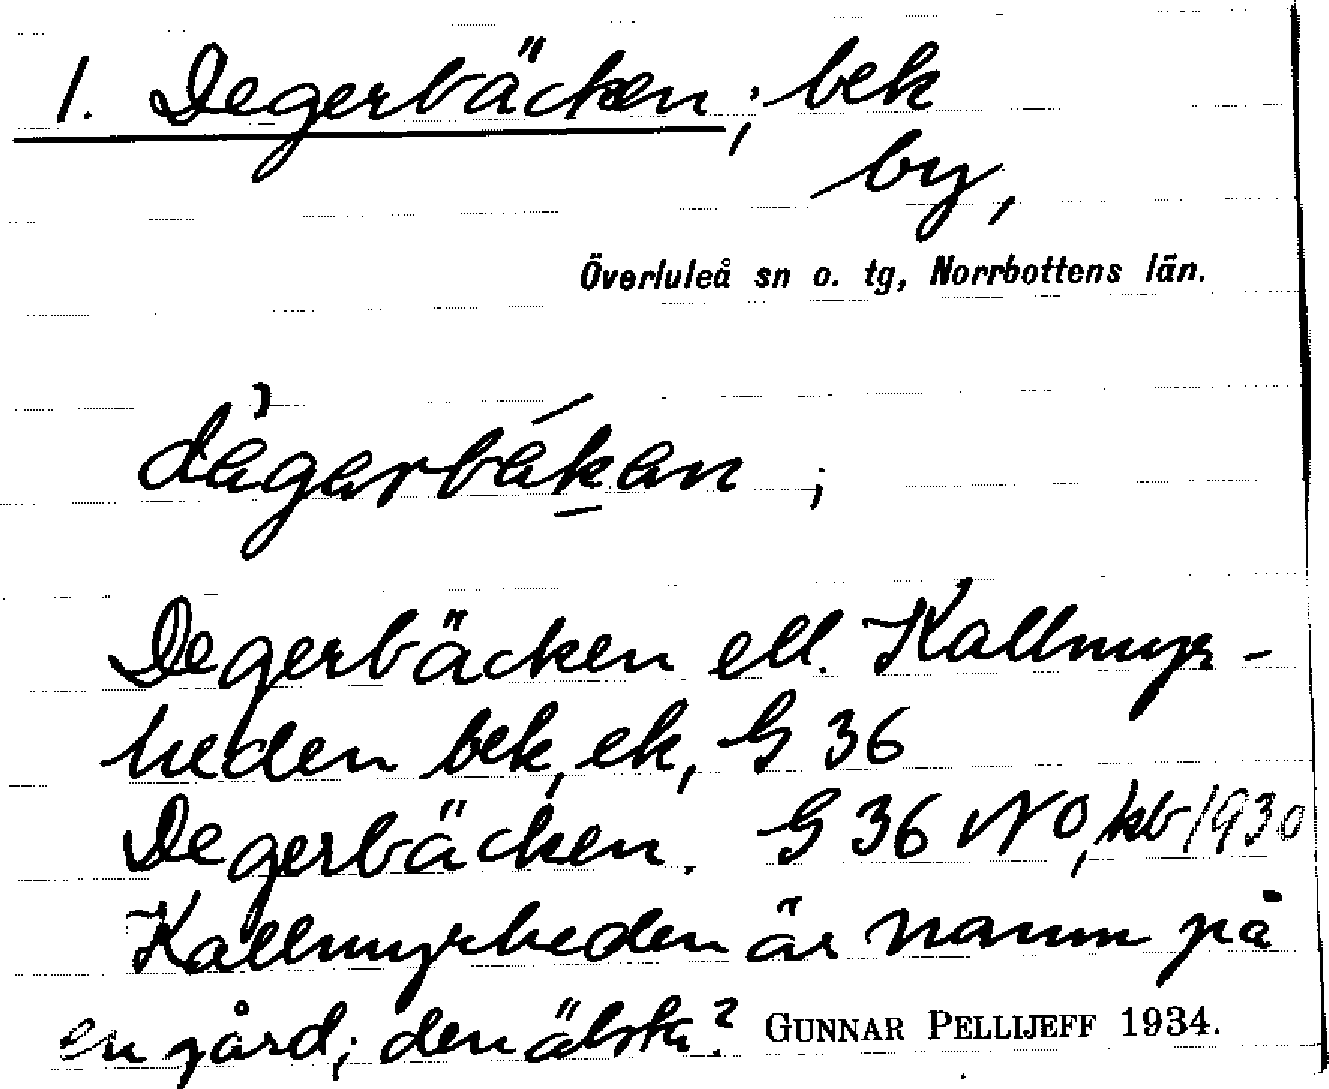 1. Degerbäcken; bek
by,
Överluleå sn o. tg, Norrbottens län.
dägarbäkan ;
Degerbäcken ell. Kallmyr-
heden bek, ek, G 36
Degerbäcken. G 36 NO, kb 1930
Kallmyrheden är namn på
en gård; den älsta? GUNNAR PELLIJEFF 1934.